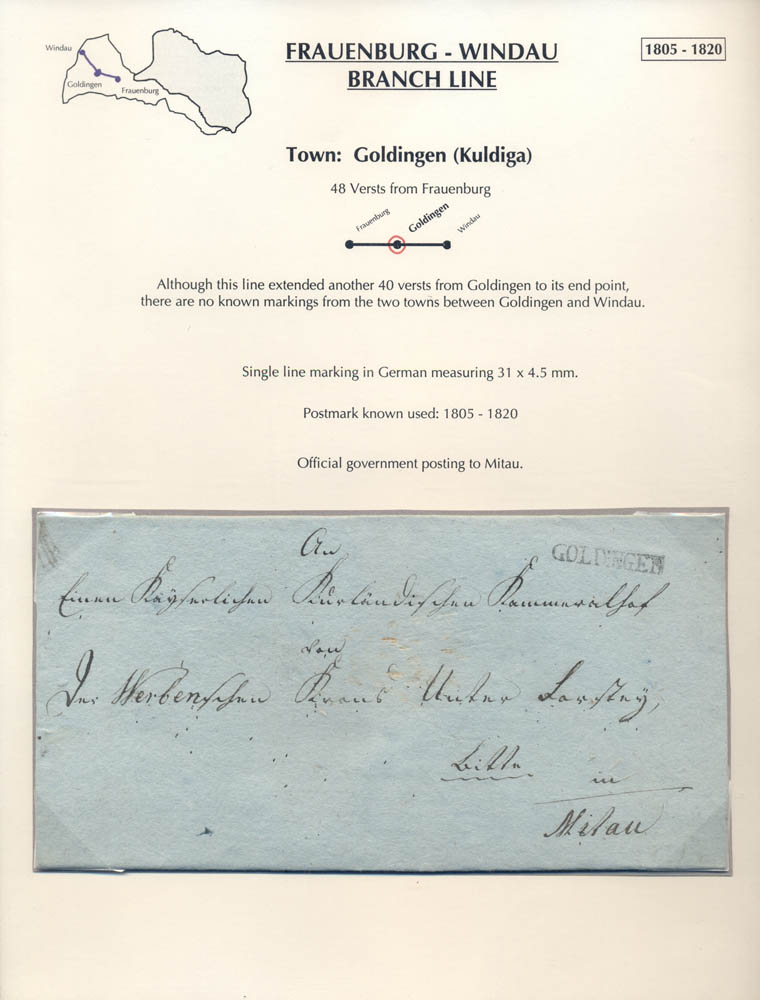 Windau
Goldingen
Frauenburg
FRAUENBURG - WINDAU
BRANCH LINE
1805 - 1820
Town: Goldingen (Kuldiga)
48 Versts from Frauenburg
Frauenburg
Goldingen
Windau
Although this line extended another 40 versts from Goldingen to its end point,
there are no known markings from the two towns between Goldingen and Windau.
Single line marking in German measuring 31 x 4.5 mm.
Postmark known used: 1805 - 1820
Official government posting to Mitau.
An
GOLDINGEN
Einen Kayserlichen Kurländischen Kammeralhof
von
Der Werbenschen Krons Unter Forstey,
Bitte in
Mitau